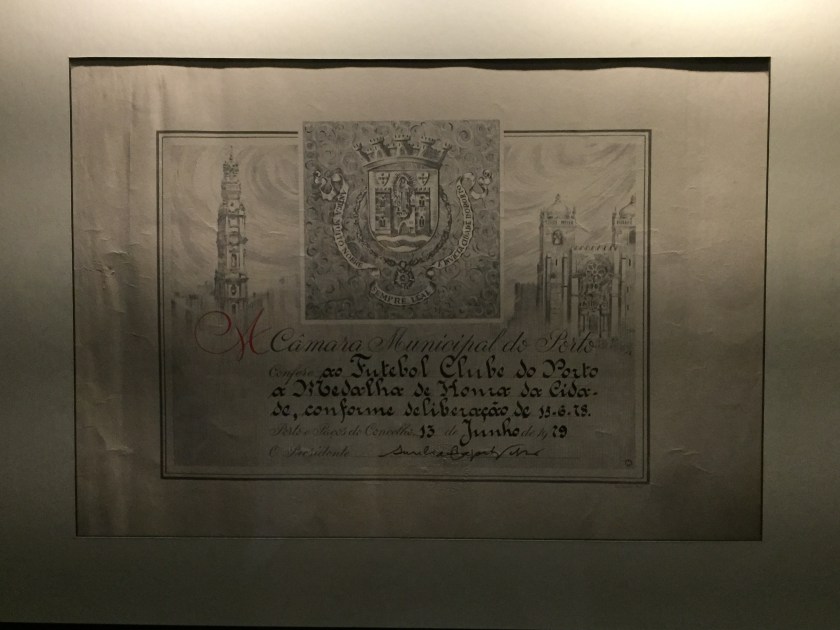 SEMPRE LEAL
A Câmara Municipal do Porto
Confere ao Futebol Clube do Porto
a Medalha de Honra da Cida-
de, conforme deliberação de 13-6-78.
Porto e Paços do Concelho, 13 de Junho de 1979
O Presidente